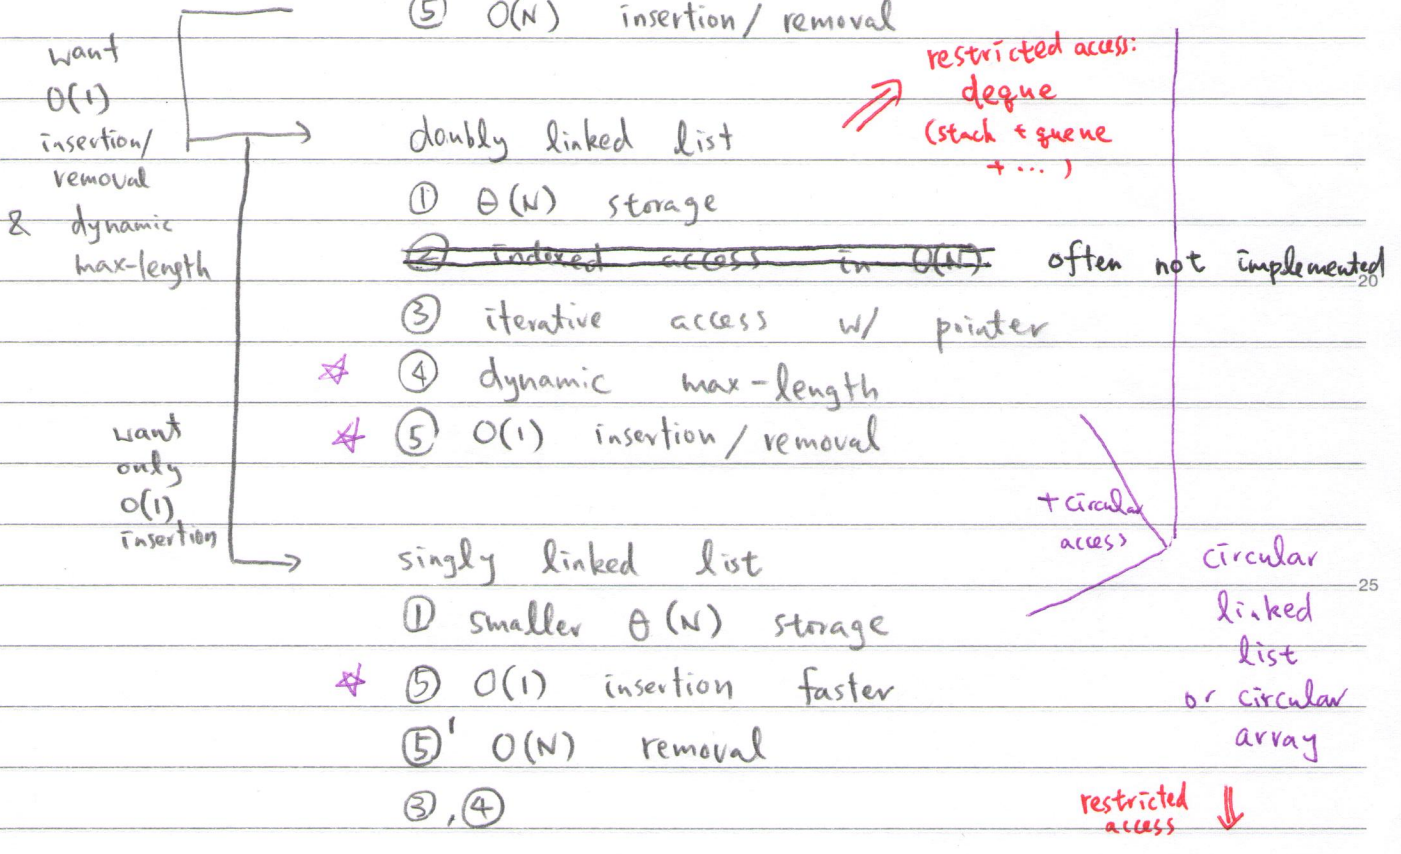 ⑤ O(N) insertion / removal
want
O(1)
insertion/
removal
& dynamic
max-length
restricted access:
deque
(stack + queue
+ ... )
doubly linked list
① θ(N) storage
② indexed access in O(N) often not implemented
20
③ iterative access w/ pointer
☆ ④ dynamic max-length
☆ ⑤ O(1) insertion / removal
want
only
O(1)
insertion
+ circular
access
singly linked list
25
① smaller θ(N) storage
☆ ⑤ O(1) insertion faster
⑤' O(N) removal
③, ④
circular
linked
list
or circular
array
restricted
access